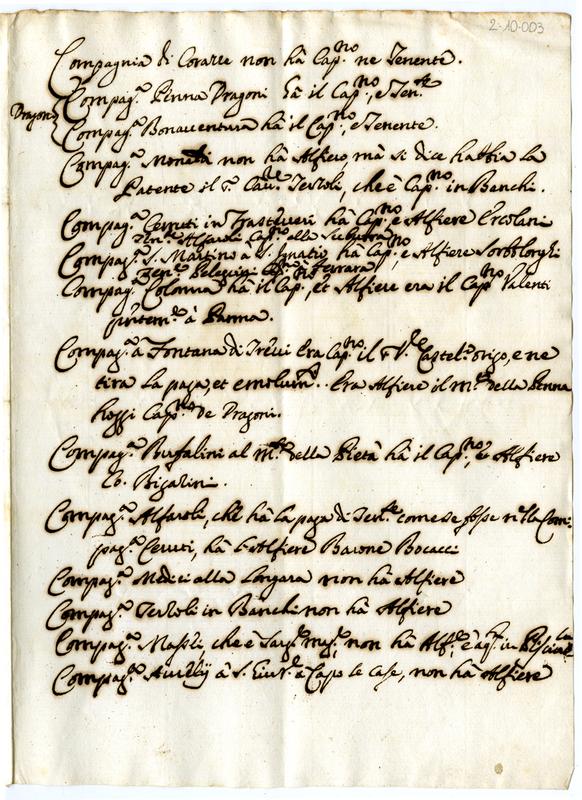 2-10-003
Compagnia di Corazze non hà Cap.no ne Tenente.
Dragoni
Compag.a Penna Dragoni hà il Cap.no, e Ten.te
Compag.a Bonaventura hà il Cap.no, e Tenente.
Compag.a non hà Alfiero, mà si dice habbia la
Patente il S.r Cav.re Tertoli, che è Cap.no in Banchi.
Compag.a Cerruti in Trastevere hà Cap.no e Alfiere Ercolani
Alfaroli Cap.no alla
Compag.a S. Martino à S. Ignatio hà Cap.no, e Alfiere
Pelegrini Ferrara
Compag.a Colonna hà il Cap.no, et Alfiere era il Cap.no Valenti
à Parma.
Compag.a à Fontana di Trevi Era Cap.no il e ne
tira la paga, et Era Alfiere il della Penna
hoggi Cap.no de Dragoni.
Compag.a Bufalini al M.te della Pietà hà il Cap.no, et Alfiere
Co. Bigalini.
Compag.a Alfaroli, che hà la paga di Ten.te come se fosse nella Com-
pag.a Ceruti, hà l'Alfiere Barone Bocacci
Compag.a Medici alla Longara non hà Alfiere
Compag.a Tertoli in Banchi non hà Alfiere
Compag.a che è Sarg.te mag.re non hà Alf.re è
Compag.a à S. à Capo le Case, non hà Alfiere